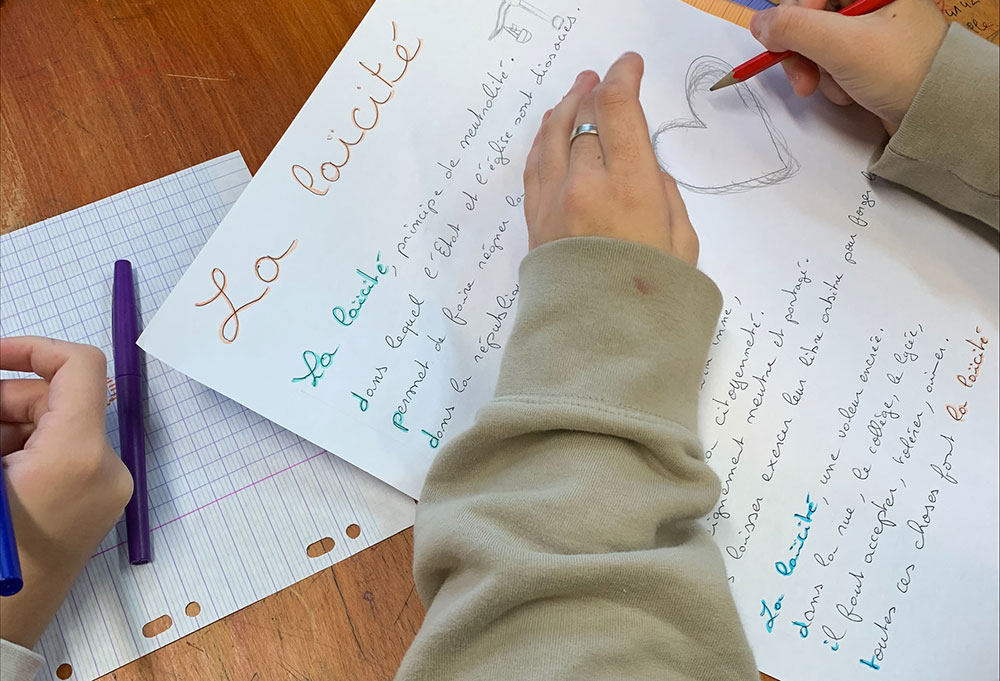 La laïcité
La laïcité, principe de neutralité.
dans lequel l'État et l'église sont dissociés.
permet de faire régner la
dans la républiq
inné,
la citoyenneté.
ignement neutre et partagé.
laisser exercer leur libre arbitre pour forger
La laïcité, une valeur encrée.
dans la rue, le collège, le lycée,
il faut accepter, tolérer, aimer.
toutes ces choses font la laïcité